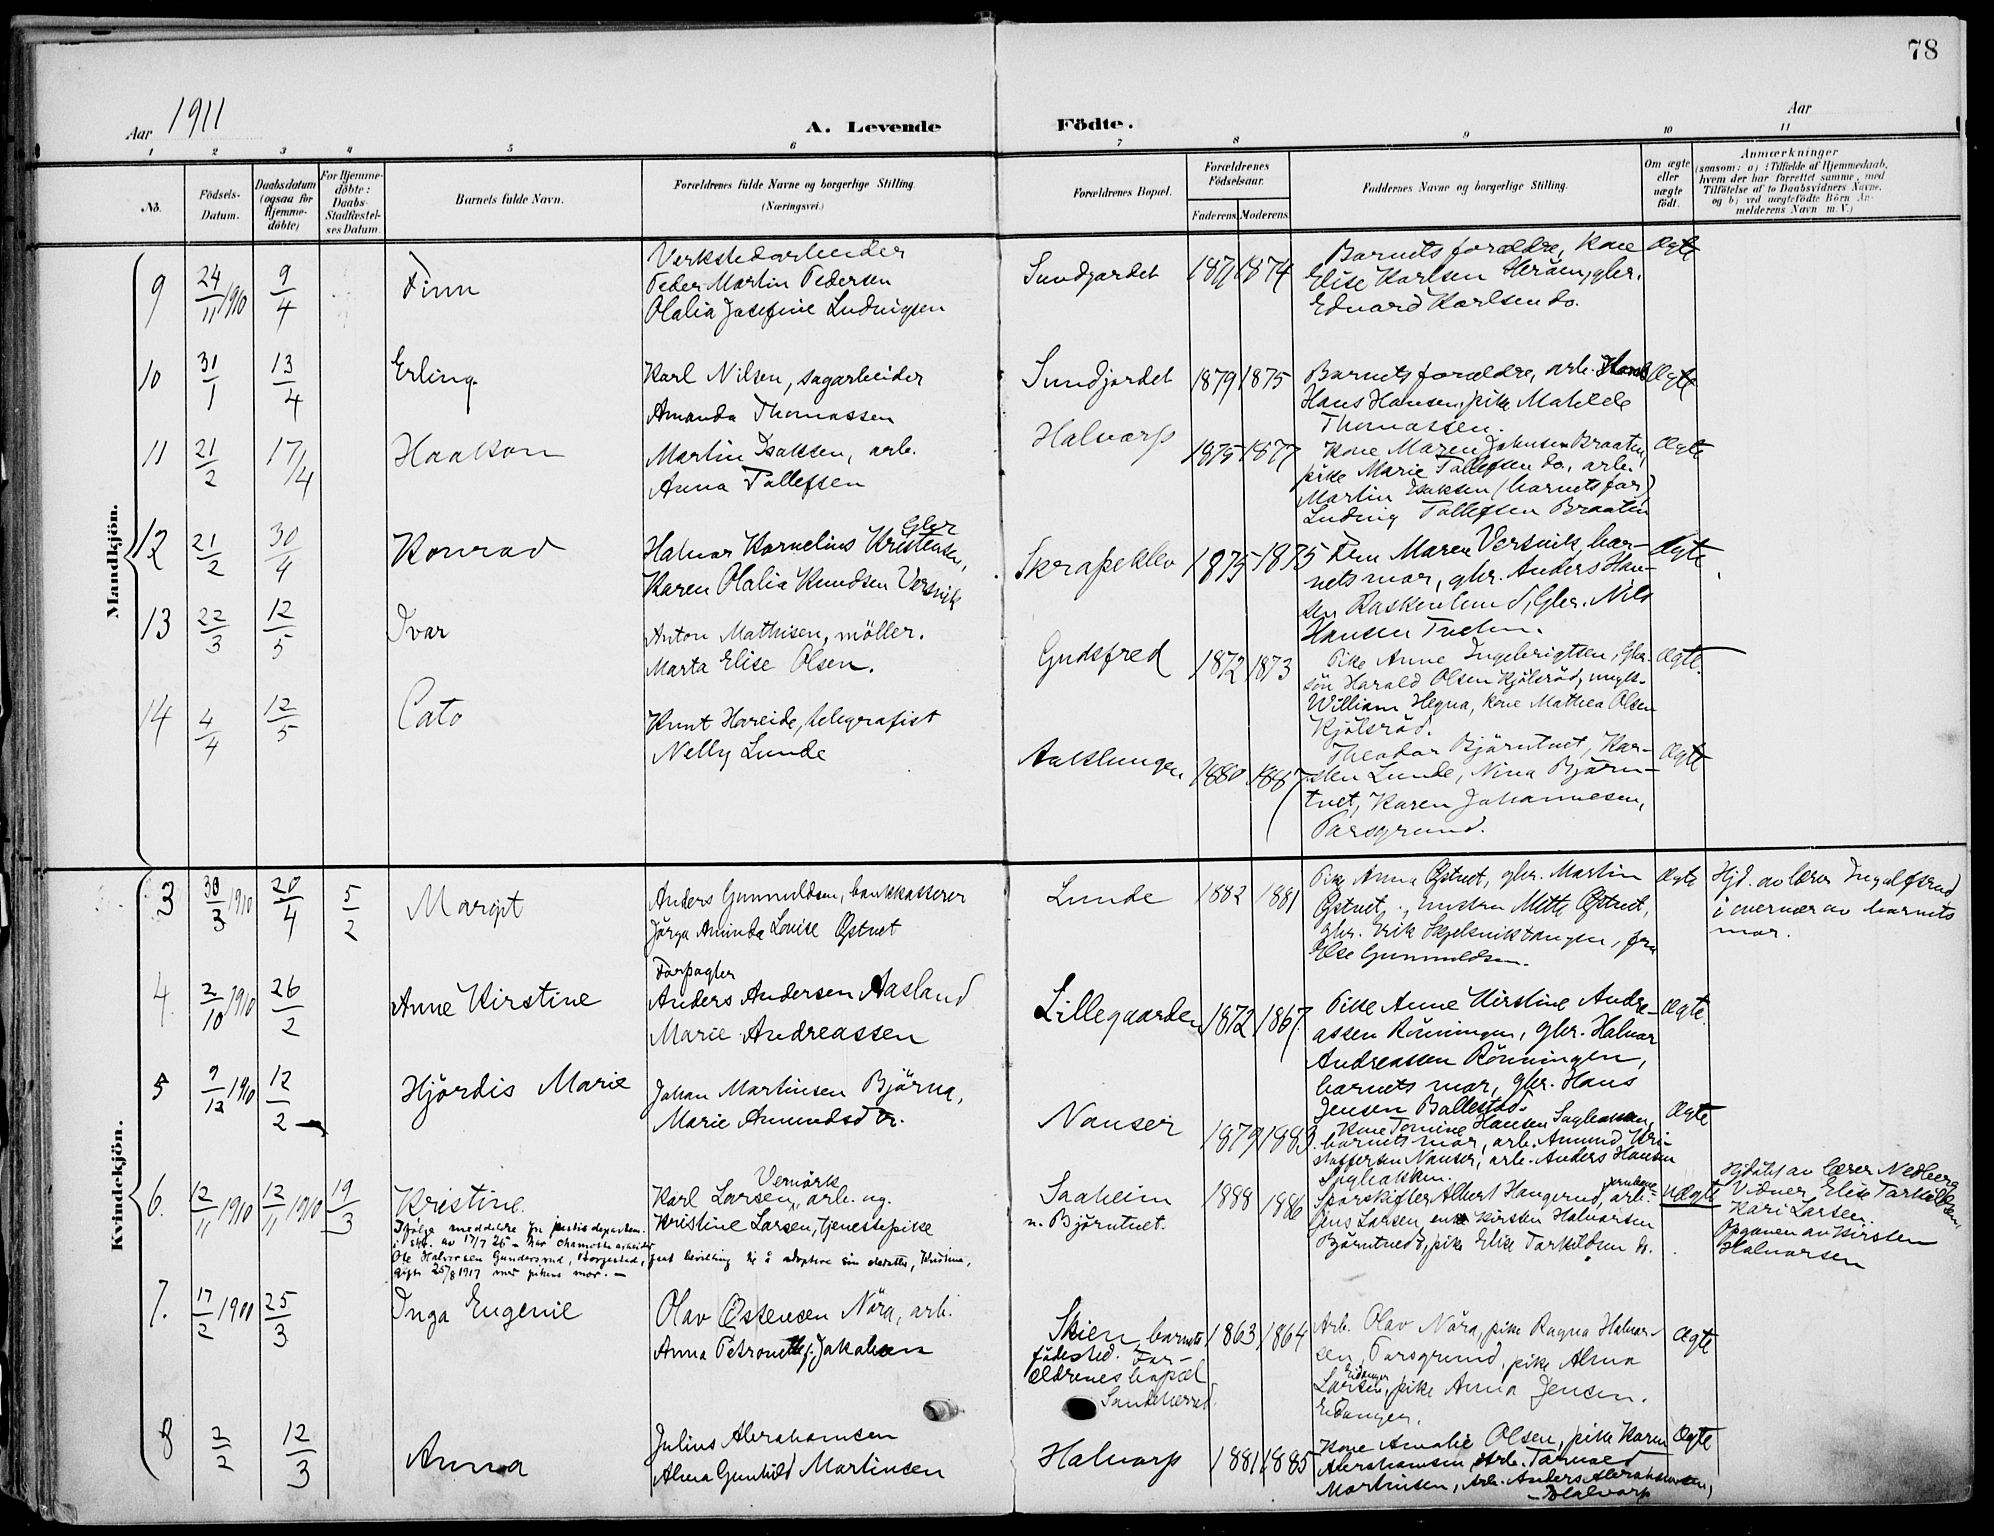 78
Aar 1911
A. Levende Födte.
Aar
1 2 3 4 5 6 7 8 9 10 11
No.
Födsels-Datum.
Daabsdatum (ogsaa for Hjemme-döbte)
For Hjemme-döbte: Daabs-Stadfæstel-ses Datum.
Barnets fulde Navn.
Forældrenes fulde Navne og borgerlige Stilling.
(Næringsvei.)
Forældrenes Bopæl.
Forældrenes Födselsaar.
Faderens. Moderens.
Faddernes Navne og borgerlige Stilling.
Om ægte eller uægte födt.
Anmærkninger
(saasom: a) i Tilfælde af Hjemmedaab, hvem der har forrettet samme, med Tilföielse af to Daabsvidners Navne, og b) ved uægtefödte Börn An-melderens Navn m. V.)
Mandkjön.
9 24/11 1910 9/4 Finn
Verkstedarbeider
Peder Martin Pedersen
Olalia Josefine Ludvigsen
Sundjordet 1871 1874
Barnets forældre, kone
Elise Karlsen Heröen, gbr.
Edvard Karlsen do.
Ægte
10 31/1 13/4 Erling.
Karl Nilsen, sagarbeider
Amanda Thomassen
Sundjordet 1879 1875
Barnets forældre, arb.
Hans Hansen, pike Matilde
Thomassen.
Ægte
11 21/2 17/4 Haakon
Martin Isaksen, arb.
Anna Tollefsen
Halvarp 1875 1877
Kone Maren Johnsen Braaten,
pike Marie Tollefsen do., arb.
Martin Isaksen (barnets far)
Ludvig Tollefsen Braaten
Ægte
12 21/2 30/4 Konrad
Gbr
Halvor Kornelius Kristensen,
Karen Olalia Knudsen Versvik
Skrapeklev 1875 1875
Fru Maren Versvik, bar-
nets mor, gbr. Anders Han-
sen Raskenlund, Gbr. Nils
Hansen Tveten.
Ægte
13 22/3 12/5 Ivar
Anton Mathisen, möller.
Marta Elise Olsen.
Gudsfred 1872 1873
Pike Anne Ingebrigtsen, Gbr.
sön Harald Olsen Kjölsröd, ungk.
William Hegna, kone Mathea Olsen
Kjölsröd.
Ægte.
14 4/4 12/5 Cato
Knut Hareide, telegrafist
Nelly Lunde
Aakslungen 1880 1887
Theodor Björntvet, Kar-
sten Lunde, Nina Björn-
tvet, Karen Johannesen,
Porsgrund.
Ægte
Kvindekjön.
3 30/3 1910 20/4 5/2 Margit
Anders Gunnuldsen, bankkasserer
Jörga Aminda Louise Östvet
Lunde 1882 1881
Pike Anna Östvet, gbr. Martin
Östvet, enken Mette Östvet,
gbr. Erik Skjelsviktangen, fru
Else Gunnuldsen.
Ægte
Hjd. av lærer Ingolfsrud
i overvær av barnets
mor.
4. 2/10 1910 26/2 Anne Kirstine
Forpagter
Anders Andersen Aasland
Marie Andreassen
Lillegaarden 1872 1867
Pike Anne Kirstine Andre-
assen Rönningen, gbr. Halvor
Andreassen Rönningen,
barnets mor, gbr. Hans
Jensen Ballestad.
Ægte.
5 9/12 1910 12/2 Hjördis Marie
Johan Martinsen Björna,
Marie Amundsdtr.
Nanset 1879 1883
Kone Tomine Hansen Saghaven,
barnets mor, arb. Amund Kri-
stoffersen Nanset, arb. Anders Hansen
Ægte
6. 12/11 1910 12/11 1910 19/3 Kristine.
Vemörk
Karl Larsen, arb. ug.
Kristine Larsen, tjenestepike
Saaheim
n. Björntvet.
1888 1886
Sporskifter Albert Haugerud, arb.
Jens Larsen, enke Kirsten Halvorsen
Björntvedt, pike Elise Torkildsen do.
Uægte
Hjdöbt av lærer Nedberg
Vidner Elise Torkildsen,
Kari Larsen.
Opgaven av Kirsten
Halvorsen
Ifölge meddelelse fra justisdepartem.
i skr. av 17/7 25 har chamottearbeider
Ole Halvorsen Gundersrud, Borgestad, faat bevilling til å adoptere sin stedatter, Kristine,
gift 25/8 1917 med pikens mor.
7. 17/2 1911 25/3 Inga Eugenie
Olav Östensen Nöra, arb.
Anna Petronelle f. Jakobsen
Skien barnets
födested. For-
ældrenes bopæl
Sandherred
1863 1864
Arb. Olav Nöra, pike Ragna Halvor-
sen, Porsgrund, pike Alma
Larsen, Eidanger pike Anna Jensen.
Eidanger.
Ægte
8 2/2 12/3 Anna
Julius Abrahamsen
Alma Gunhild Martinsen
Halvarp 1881 1885
Kone Amalie Olsen, pike Karen
Abrahamsen, Arb. Torvald
Martinsen, Arb. Anders Abrahamsen,
Halvarp
Ægte